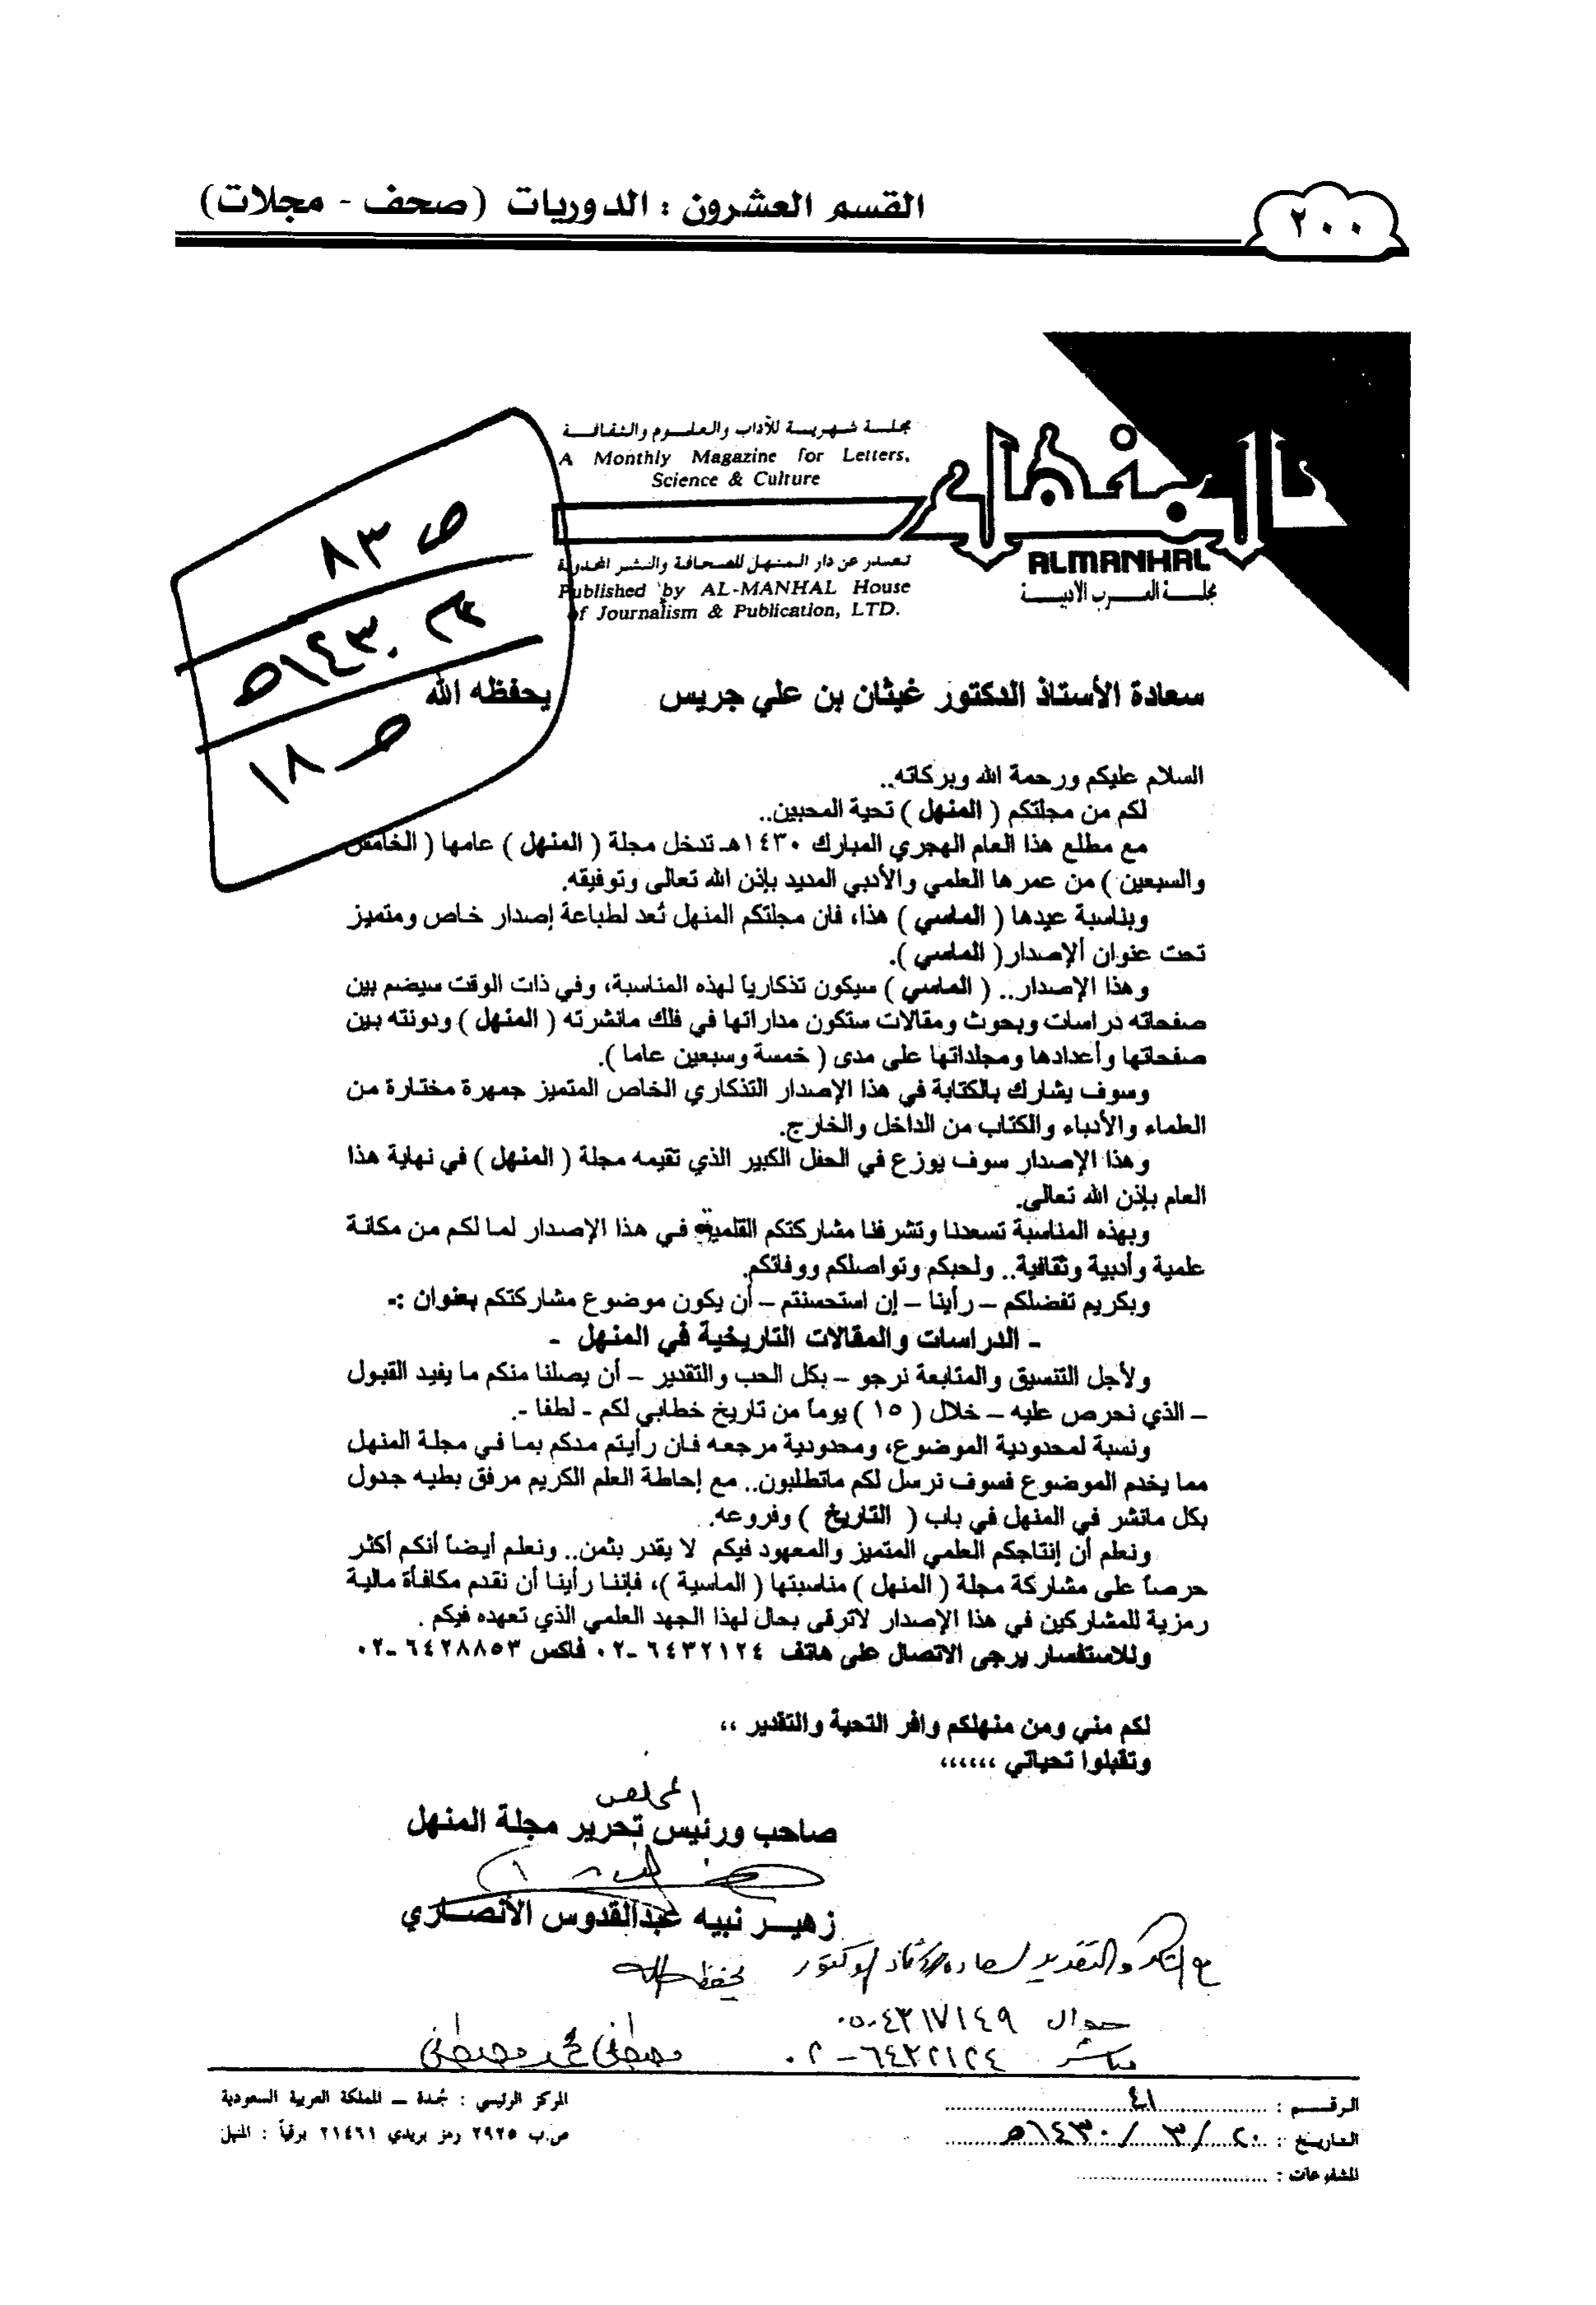 ٢٠٠
القسم العشرون : الدوريات (صحف - مجلات)
مجلة شهرية للآداب والعلوم والثقافة
A Monthly Magazine for Letters,
Science & Culture
المنهل
ALMANHAL
مجلة العرب الأدبية
تصدر عن دار المنهل للصحافة والنشر المحدودة
Published by AL-MANHAL House
of Journalism & Publication, LTD.
ص ٨٣
١٤٣٠هـ
ص ١٨
سعادة الأستاذ الدكتور غيثان بن علي جريس يحفظه الله
السلام عليكم ورحمة الله وبركاته..
لكم من مجلتكم ( المنهل ) تحية المحبين..
مع مطلع هذا العام الهجري المبارك ١٤٣٠هـ تدخل مجلة ( المنهل ) عامها ( الخامس
والسبعين ) من عمرها العلمي والأدبي المديد بإذن الله تعالى وتوفيقه.
وبناسبة عيدها ( الماسي ) هذا، فان مجلتكم المنهل تُعد لطباعة إصدار خاص ومتميز
تحت عنوان ألإصدار ( الماسي ).
وهذا الإصدار.. ( الماسي ) سيكون تذكارياً لهذه المناسبة، وفي ذات الوقت سيضم بين
صفحاته دراسات وبحوث ومقالات ستكون مداراتها في فلك مانشرته ( المنهل ) ودونته بين
صفحاتها وأعدادها ومجلداتها على مدى ( خمسة وسبعين عاما ).
وسوف يشارك بالكتابة في هذا الإصدار التذكاري الخاص المتميز جمهرة مختارة من
العلماء والأدباء والكتاب من الداخل والخارج.
وهذا الإصدار سوف يوزع في الحفل الكبير الذي تقيمه مجلة ( المنهل ) في نهاية هذا
العام بإذن الله تعالى.
وبهذه المناسبة تسعدنا وتشرفنا مشاركتكم القلمية في هذا الإصدار لما لكم من مكانة
علمية وأدبية وثقافية.. ولحبكم وتواصلكم ووفائكم.
وبكريم تفضلكم – رأينا – إن استحسنتم – أن يكون موضوع مشاركتكم بعنوان :-
- الدراسات والمقالات التاريخية في المنهل -
ولأجل التنسيق والمتابعة نرجو – بكل الحب والتقدير – أن يصلنا منكم ما يفيد القبول
– الذي نحرص عليه – خلال ( ١٥ ) يوماً من تاريخ خطابي لكم - لطفا -.
ونسبة لمحدودية الموضوع، ومحدودية مرجعه فان رأيتم مدكم بما في مجلة المنهل
مما يخدم الموضوع فسوف نرسل لكم ماتطلبون.. مع إحاطة العلم الكريم مرفق بطيه جدول
بكل مانشر في المنهل في باب ( التاريخ ) وفروعه.
ونعلم أن إنتاجكم العلمي المتميز والمعهود فيكم لا يقدر بثمن.. ونعلم أيضاً أنكم أكثر
حرصاً على مشاركة مجلة ( المنهل ) مناسبتها ( الماسية )، فإننا رأينا أن نقدم مكافأة مالية
رمزية للمشاركين في هذا الإصدار لاترقى بحال لهذا الجهد العلمي الذي تعهده فيكم .
وللاستفسار يرجى الاتصال على هاتف ٦٤٣٢١٢٤ -٠٢ فاكس ٦٤٢٨٨٥٣ -٠٢
لكم مني ومن منهلكم وافر التحية والتقدير ،،
وتقبلوا تحياتي ،،،،،،
المخلص
صاحب ورئيس تحرير مجلة المنهل
زهير نبيه عبدالقدوس الأنصاري
مع الشكر والتقدير لسعادة الأستاذ الدكتور يحفظه الله
جوال ٠٥٠٤٣١٧١٤٩
مباشر ٦٤٣٢١٢٤ - ٠٢
مصطفى محمد مصطفى
الرقم : ٤١
التاريخ : ٢٠ / ٣ / ١٤٣٠هـ
المشفوعات :
المركز الرئيسي : جُدة – المملكة العربية السعودية
ص.ب ٢٩٢٥ رمز بريدي ٢١٤٦١ برقياً : المنهل